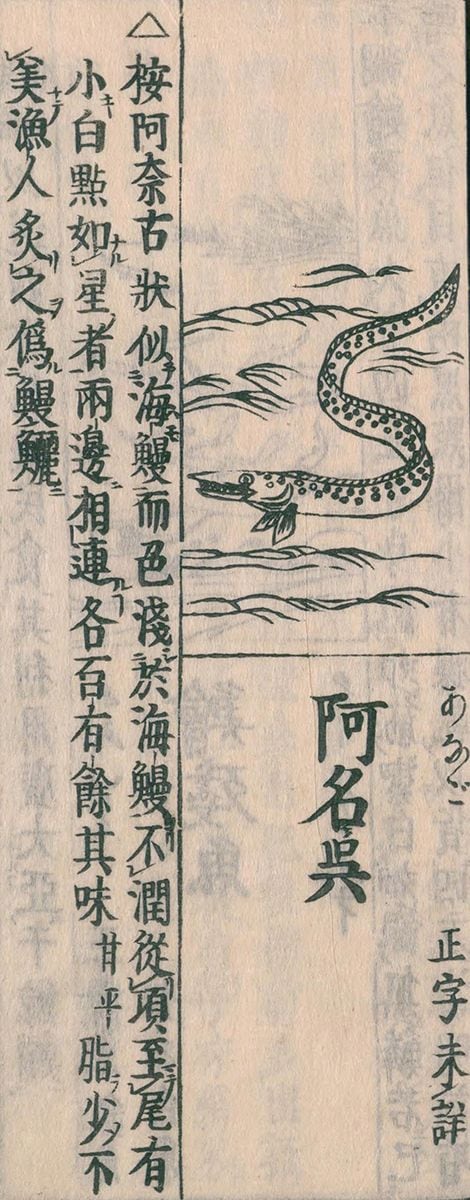 阿名呉
あなご
正字未詳
△按阿奈古狀似海鰻而色淺於海鰻不潤從項至尾有
小白點如星者兩邊相連各百有餘其味甘平脂少不
美漁人炙之偽鰻鱺